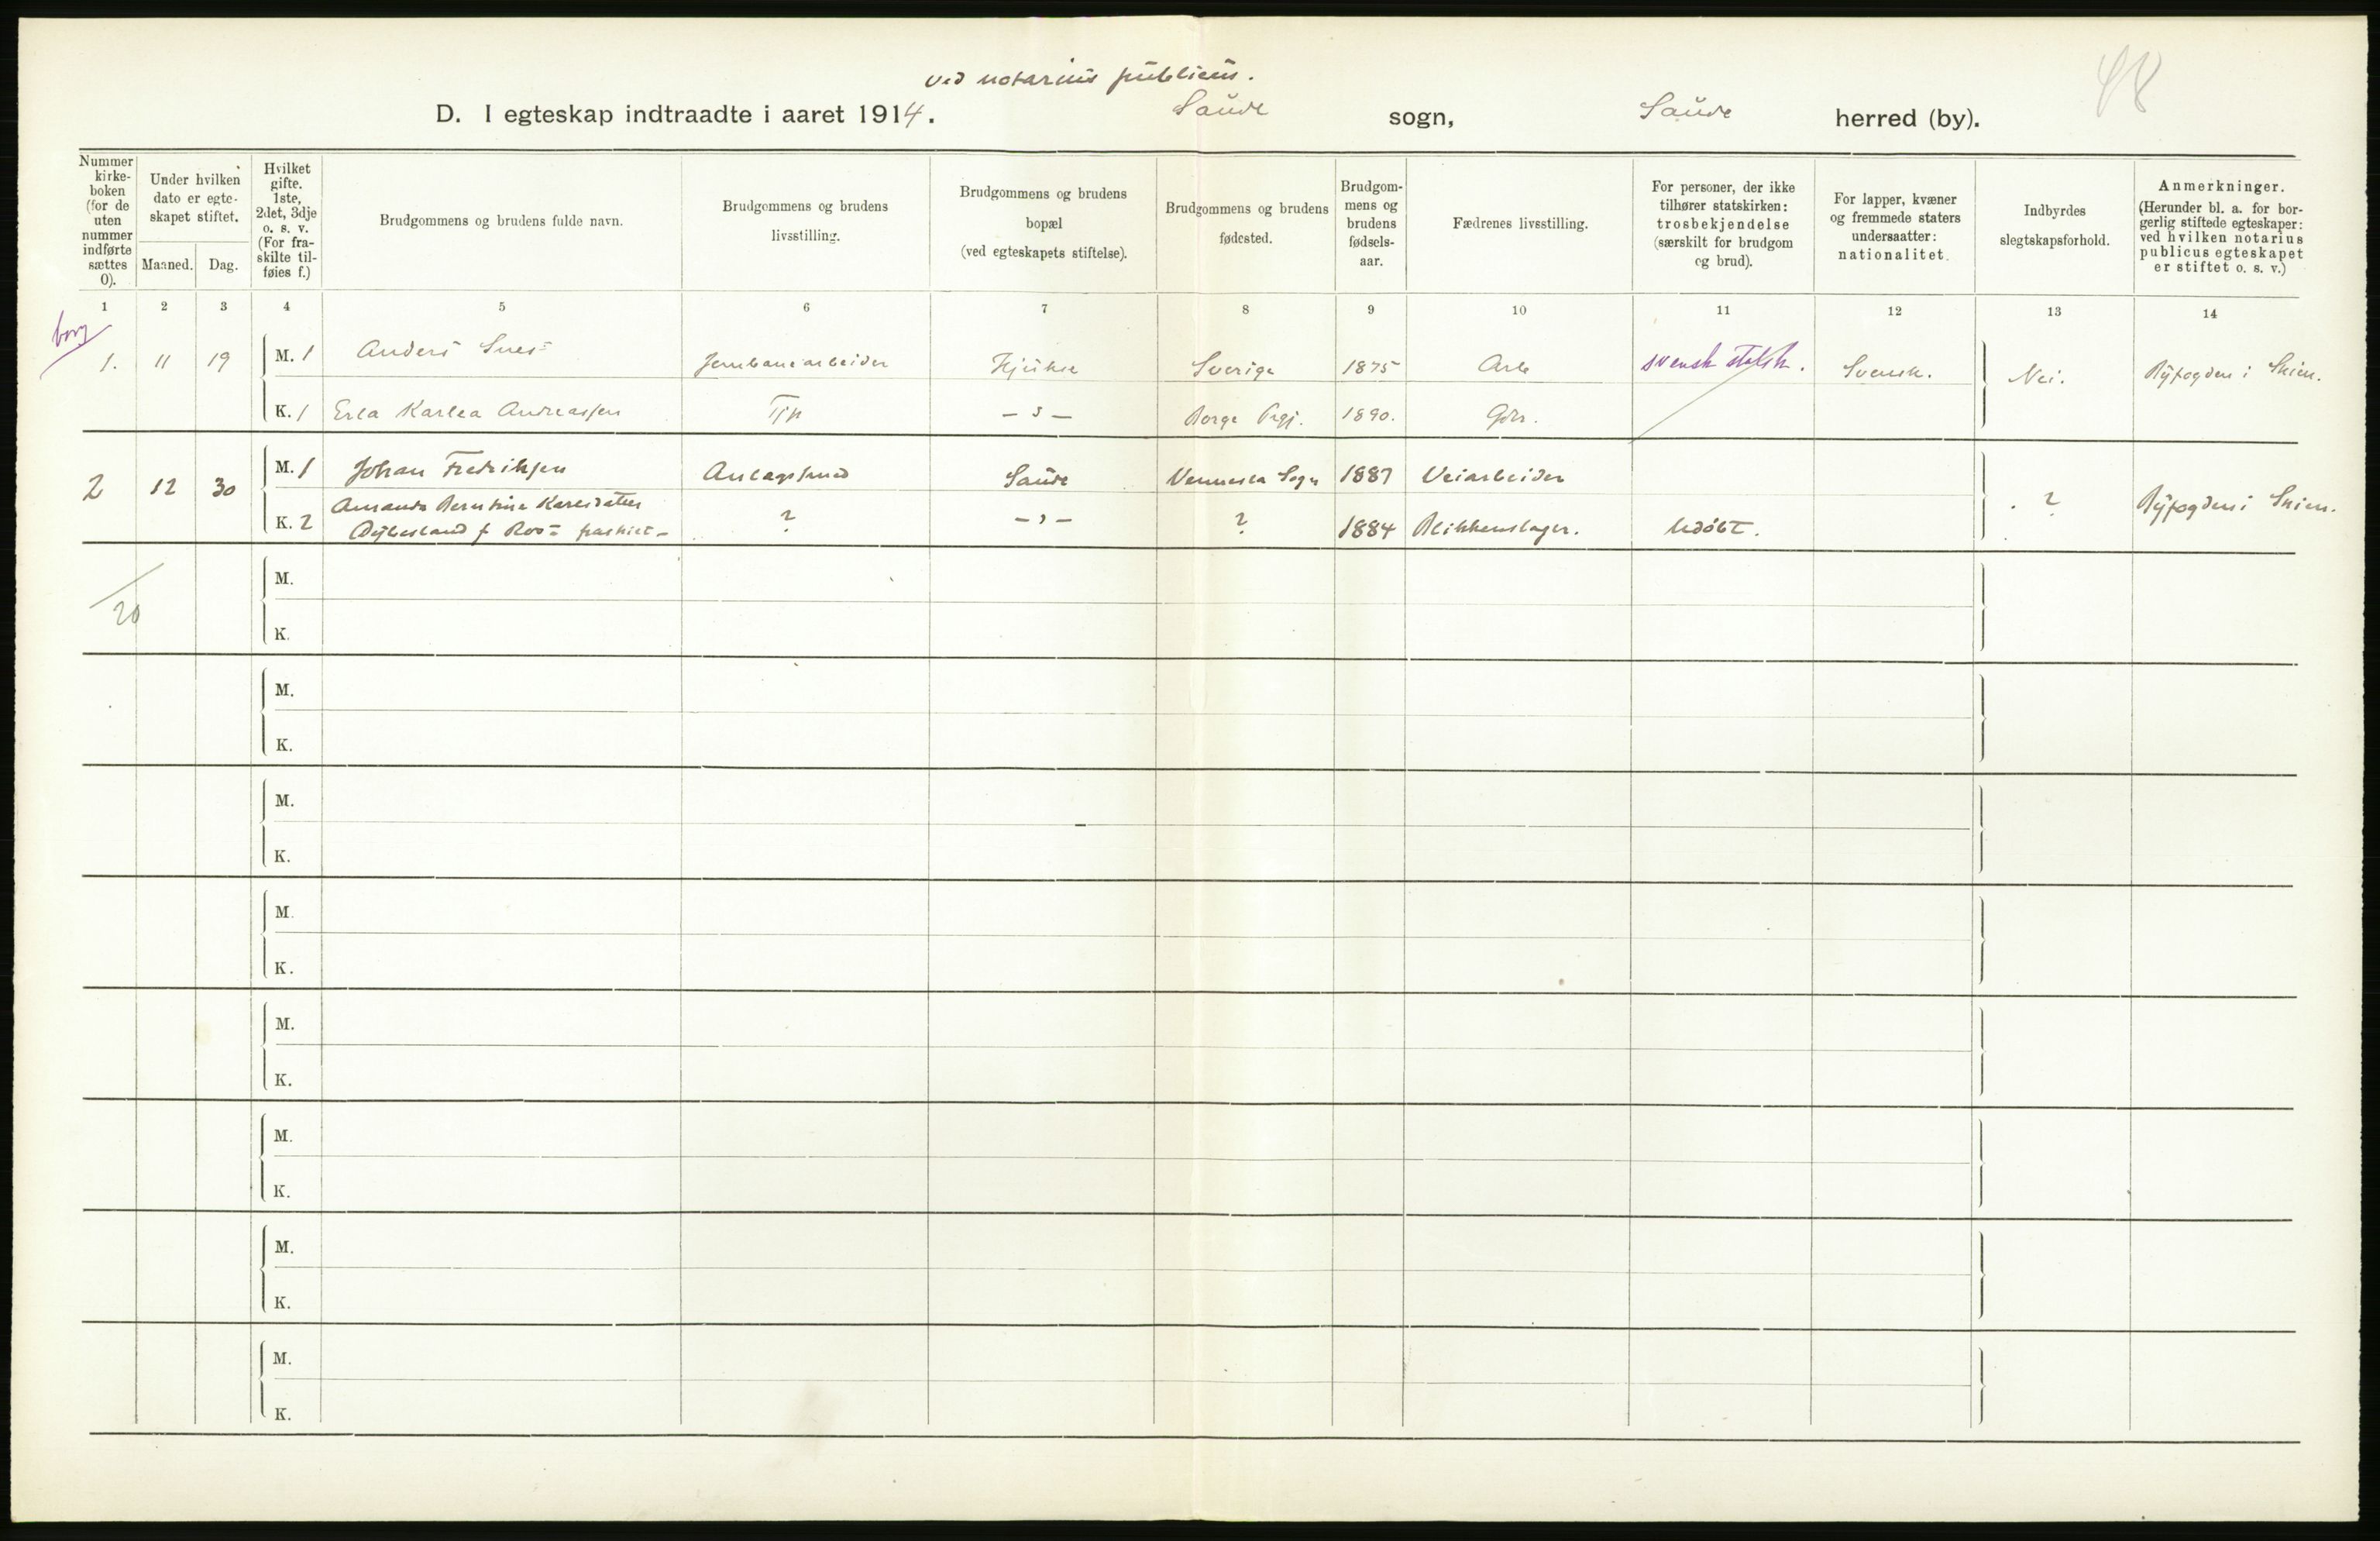 48
ved notarius publicus.
D. I egteskap indtraadte i aaret 1914. Saude sogn, Saude herred (by).
Nummer kirke-boken (for de uten nummer indførte sættes 0).
Under hvilken dato er egte-skapet stiftet.
Maaned. Dag.
Hvilket gifte. 1ste, 2det, 3dje o. s. v. (For fra-skilte til-føies f.)
Brudgommens og brudens fulde navn.
Brudgommens og brudens livsstilling.
Brudgommens og brudens bopæl (ved egteskapets stiftelse).
Brudgommens og brudens fødested.
Brudgom-mens og brudens fødsels-aar.
Fædrenes livsstilling.
For personer, der ikke tilhører statskirken: trosbekjendelse (særskilt for brudgom og brud).
For lapper, kvæner og fremmede staters undersaatter: nationalitet.
Indbyrdes slegtskapsforhold.
Anmerkninger. (Herunder bl. a. for bor-gerlig stiftede egteskaper: ved hvilken notarius publicus egteskapet er stiftet o. s. v.)
1 2 3 4 5 6 7 8 9 10 11 12 13 14
borg
1. 11 19 M. 1 Anders Jernbanearbeider Hjukse Sverige 1875 Arb svensk statsk. Svensk. Nei. Byfogden i Skien.
K. 1 Karlea Andreassen Tjp — " — Borge Prgj. 1890. Gbr.
2 12 30 M. 1 Johan Fredriksen Anlagssmed Saude Vennesla Sogn 1887 Veiarbeider ? Byfogden i Skien.
K. 2 Amanda Berntine Karlsdatter
f. Roo fraskilt - ? — " — ? 1884 Blikkenslager. Udöbt.
M.
20
K.
M.
K.
M.
K.
M.
K.
M.
K.
M.
K.
M.
K.
M.
K.